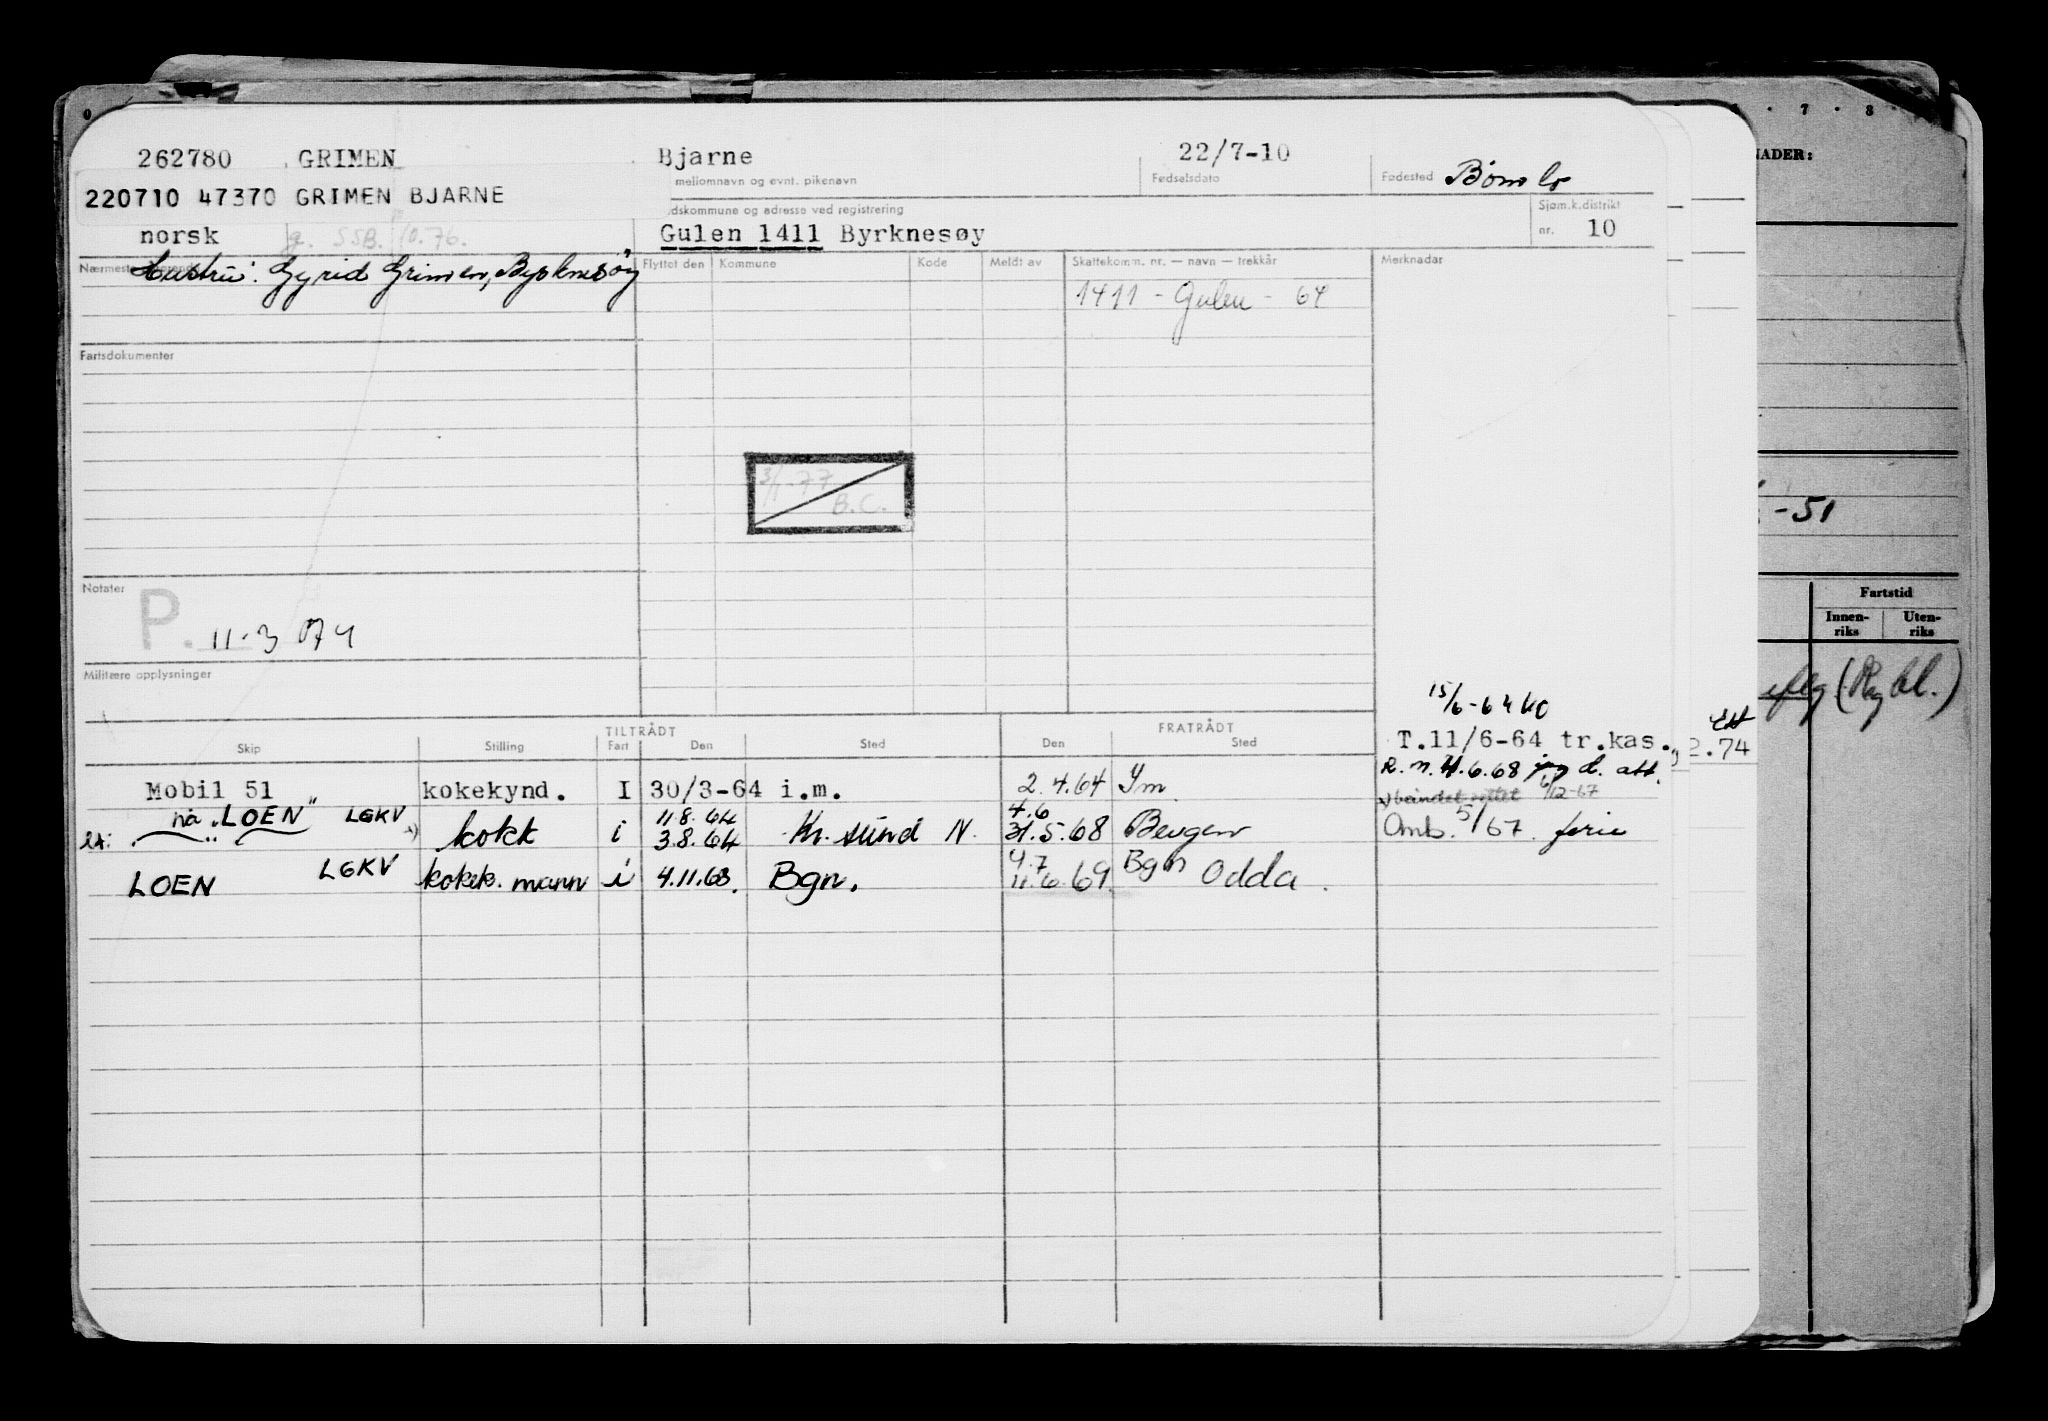 262780 GRIMEN Bjarne 22/7-10
mellomnavn og evnt. pikenavn Fødselsdato Fødested Bømlo
220710 47370 GRIMEN BJARNE
dskommune og adresse ved registrering Sjøm.k.distrikt
norsk g. SSB. 10.76. Gulen 1411 Byrknesøy nr. 10
Hustru: Gyrid Grimen, Byrknesøy
Flyttet den Kommune Kode Meldt av Skattekomm. nr. — navn — trekkår Merknader
1411 - Gulen - 64
Fartsdokumenter
3/1-77
B.C.
Notater
P. 11-3 074
Militære opplysninger
15/6-64
TILTRÅDT FRATRÅDT
Skip Stilling Fart Den Sted Den Sted
T.11/6-64 tr.kas.
Mobil 51 kokekynd. I 30/3-64 i.m. 2.4.64 Im.
R.n. 4.6.68 d. att.
6/12-67
nå "LOEN" LGKV 11.8.64 4.6
kokk i 3.8.64 Kr.sund N. 31.5.68 Bergen
Omb. 5/67. ferie
LOEN LGKV kokek. mann i 4.11.68. Bgn. 4.7 11.6.69. Bgn Odda.
7 8
NADER:
-51
Fartstid
Innen-
riks
Uten-
riks
2.74